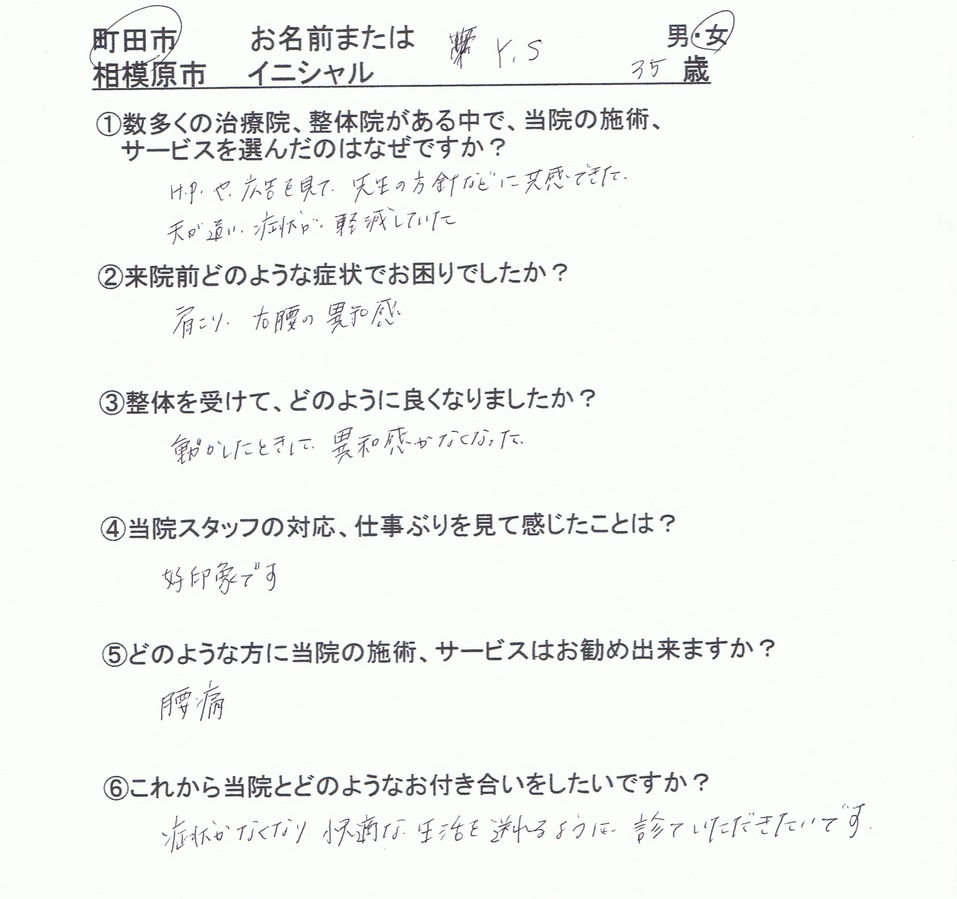 町田市 お名前または Y.S 男・女
相模原市 イニシャル 35 歳
①数多くの治療院、整体院がある中で、当院の施術、
サービスを選んだのはなぜですか？
H.P.や、広告を見て、先生の方針などに共感できた。
夫が通い、症状が、軽減していた
②来院前どのような症状でお困りでしたか？
肩こり、右腰の異和感
③整体を受けて、どのように良くなりましたか？
動かしたときして、異和感がなくなった。
④当院スタッフの対応、仕事ぶりを見て感じたことは？
好印象です
⑤どのような方に当院の施術、サービスはお勧め出来ますか？
腰痛
⑥これから当院とどのようなお付き合いをしたいですか？
症状がなくなり、快適な、生活を送れるように、診ていただきたいです。